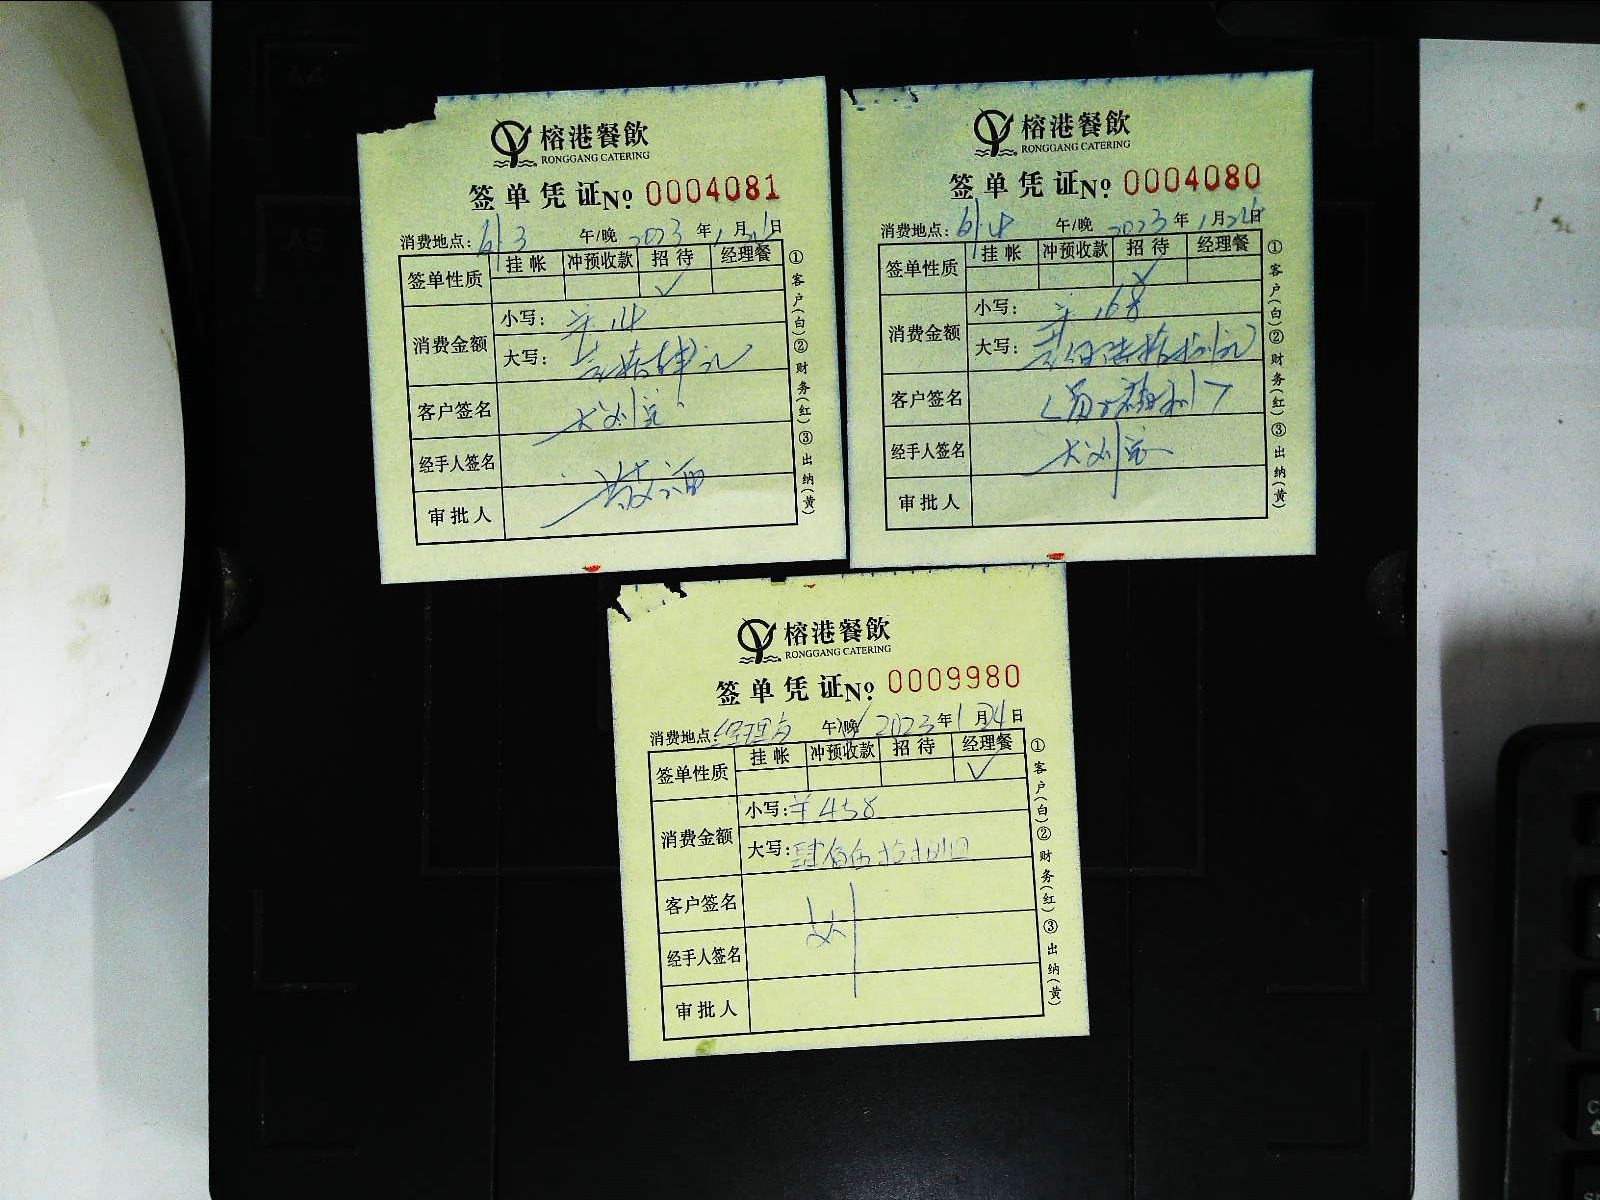 榕港餐飲
RONGGANG CATERING
签单凭证No 0004081
消费地点: 613 午/晚 2023年1月21日
签单性质 挂帐 冲预收款 招待 经理餐
✓
消费金额 小写: ¥14
大写: 壹拾肆元
客户签名
经手人签名
审批人
①客户(白)②财务(红)③出纳(黄)
榕港餐飲
RONGGANG CATERING
签单凭证No 0004080
消费地点: 午/晚 2023年1月日
签单性质 挂帐 冲预收款 招待 经理餐
✓
消费金额 小写: ¥168
大写: 壹佰陆拾捌元
客户签名
经手人签名
审批人
①客户(白)②财务(红)③出纳(黄)
榕港餐飲
RONGGANG CATERING
签单凭证No 0009980
消费地点 经理房 午/晚 2023年1月24日
签单性质 挂帐 冲预收款 招待 经理餐
✓
消费金额 小写: ¥458
大写: 肆佰伍拾捌
客户签名
经手人签名 刘
审批人
①客户(白)②财务(红)③出纳(黄)